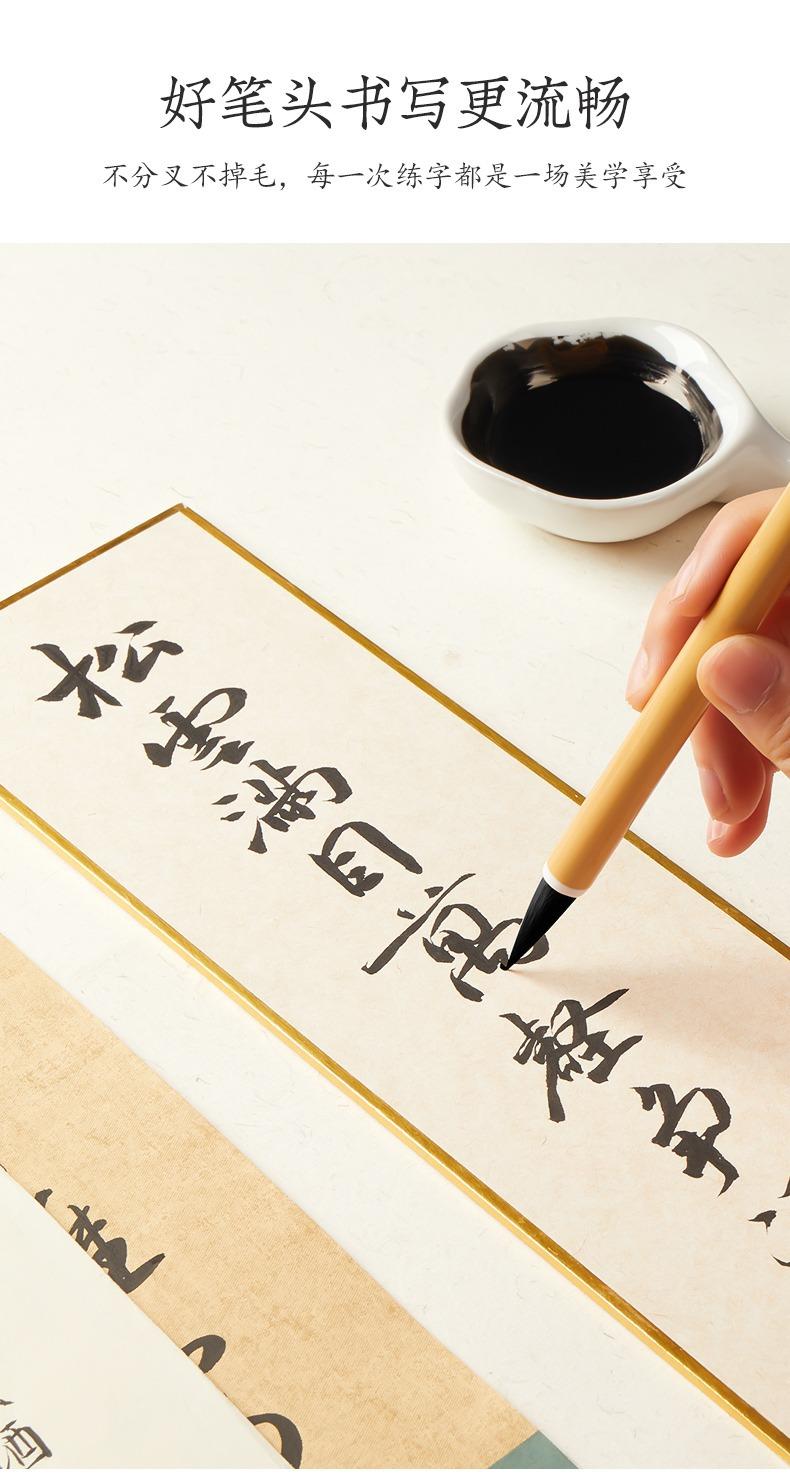 好笔头书写更流畅
不分叉不掉毛，每一次练字都是一场美学享受
松雲满目萬壑争
酒